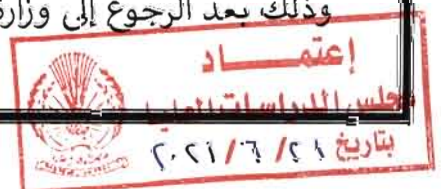 وذلك بعد الرجوع إلى وزارة
إعتمـــــاد
مجلس الدراسات العليا
بتاريخ ٢١ / ٦ / ٢٠٢١